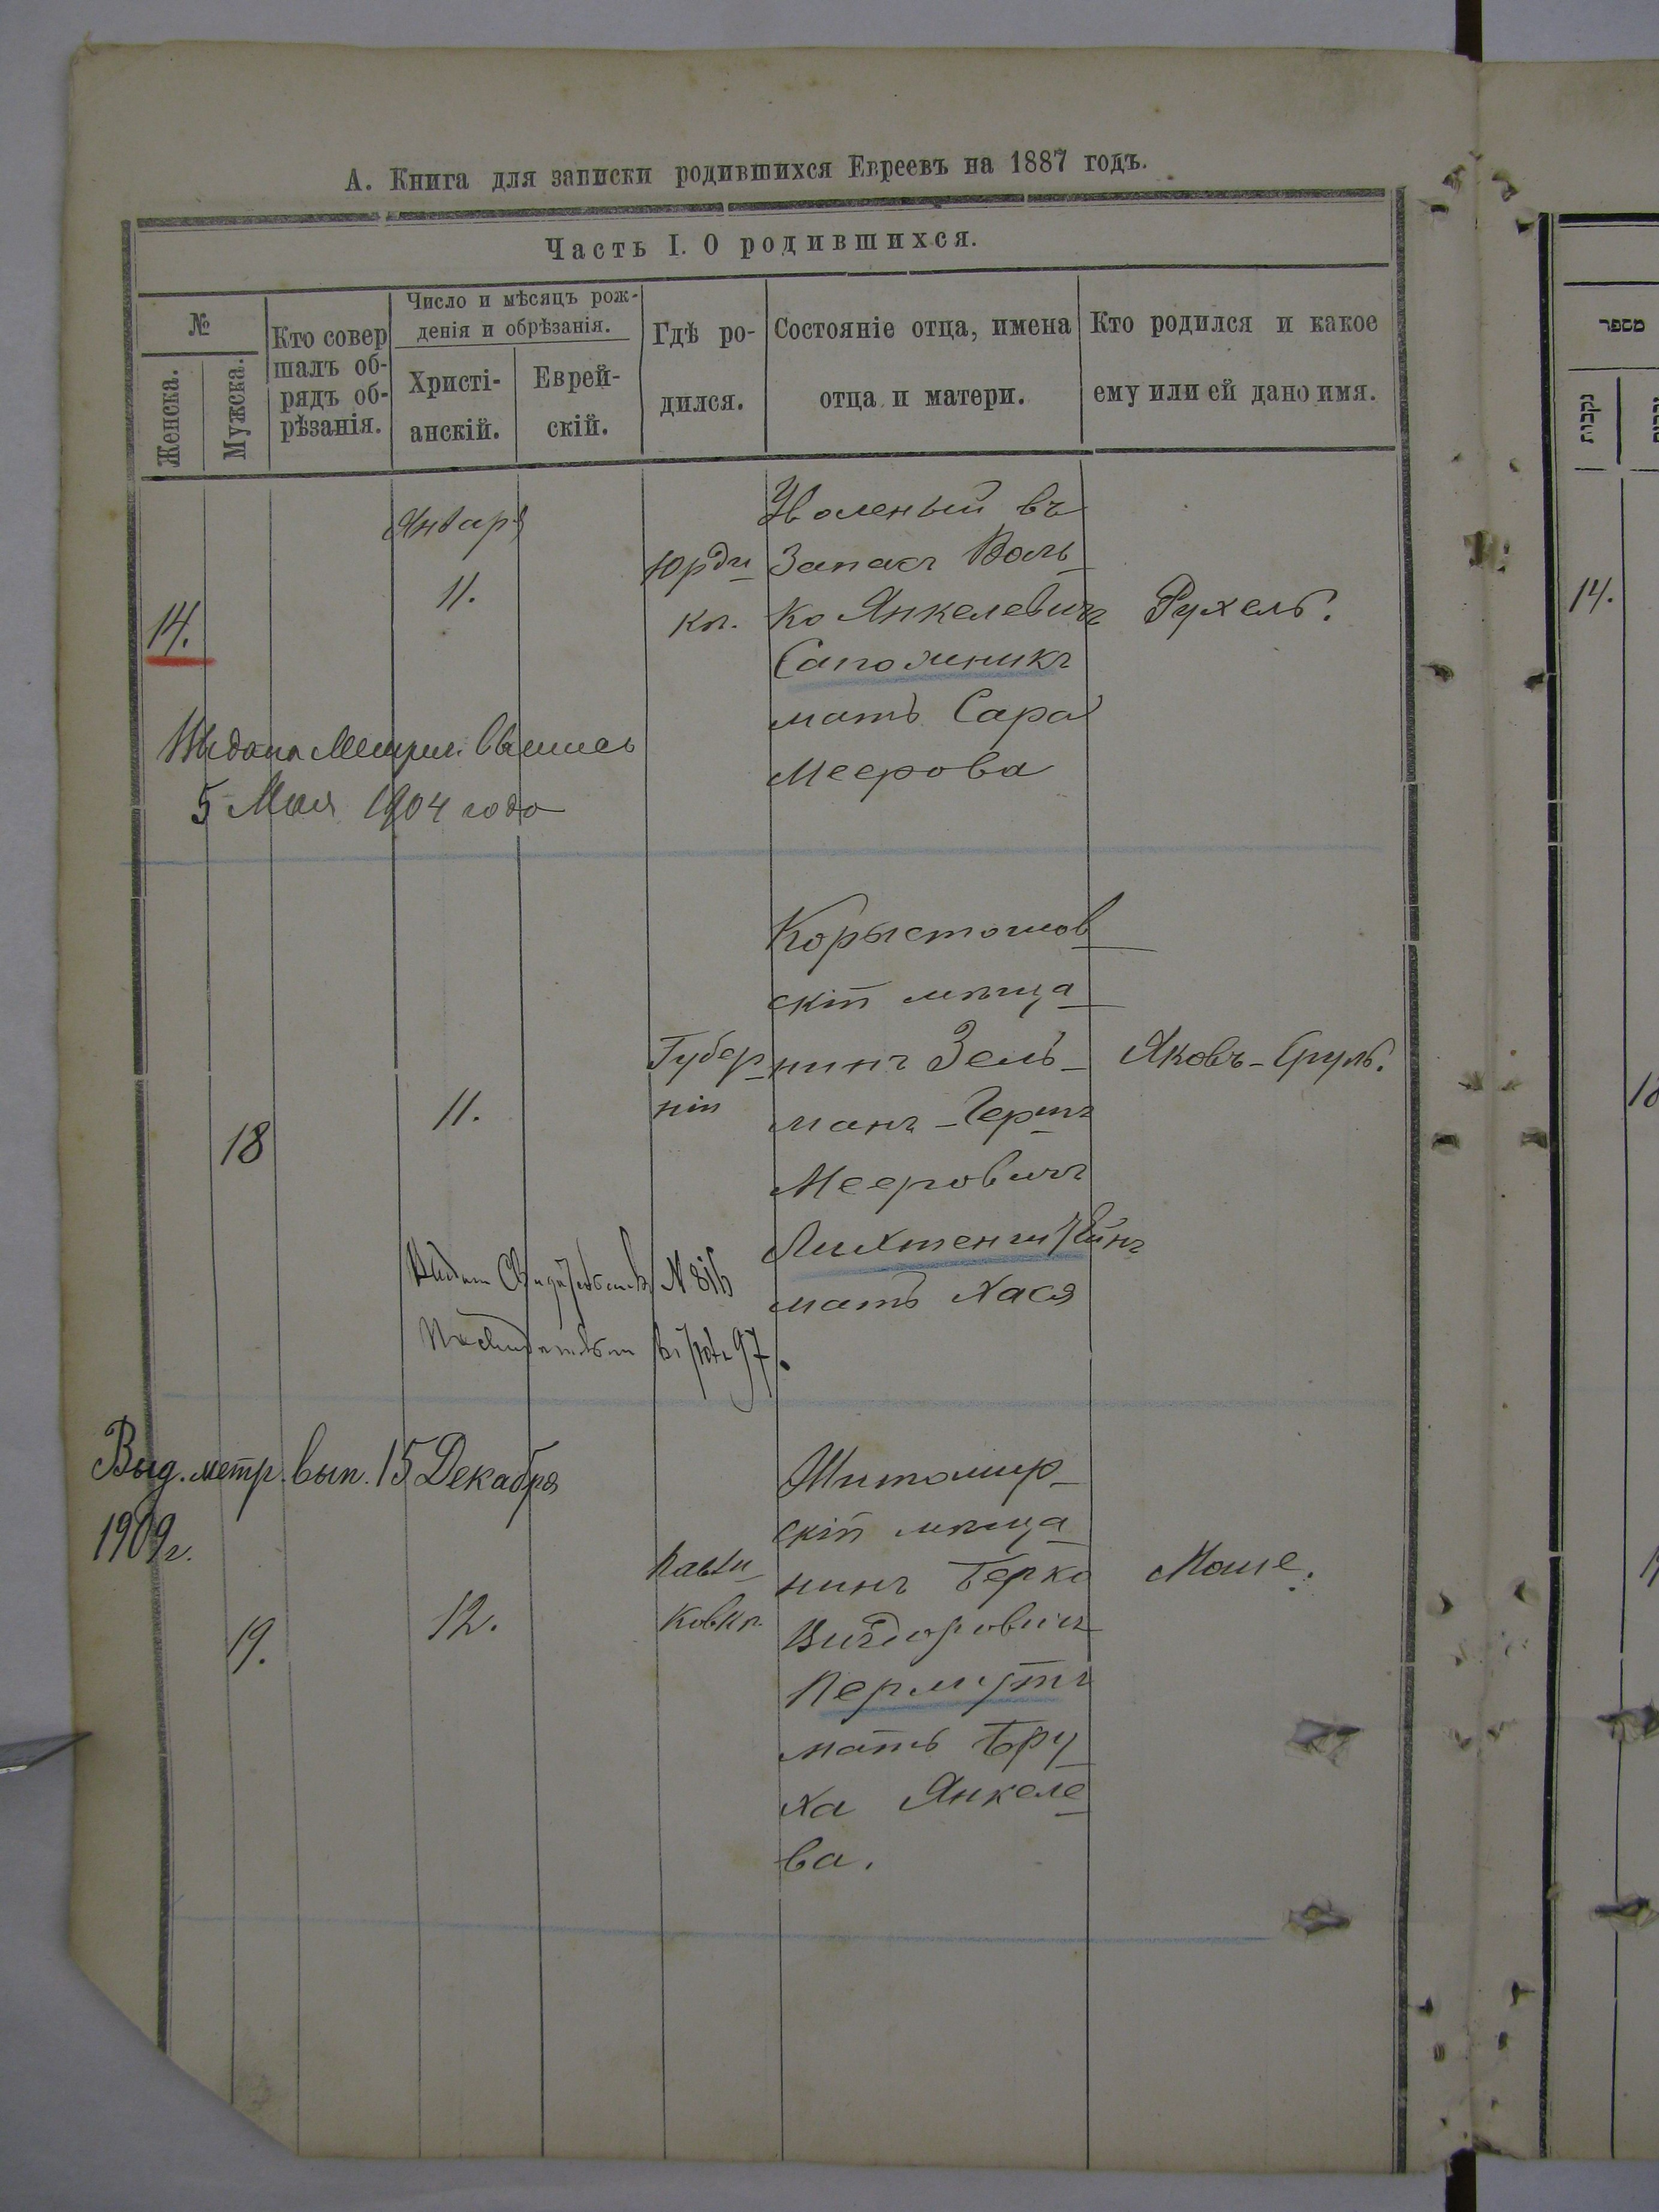 А. Книга для записки родившихся Евреевъ на 1887 годъ.
Часть I. О родившихся.
№
Женска.
Мужска.
Кто совер
шалъ об-
рядъ об-
рѣзанія.
Число и мѣсяцъ рож-
денія и обрѣзанія.
Христі-
анскій.
Еврей-
скій.
Гдѣ ро-
дился.
Состояніе отца, имена
отца и матери.
Кто родился и какое
ему или ей дано имя.
14.
Января
11.
Уволеный въ
Запасъ Воль-
ко Янкелевичъ
Сапожникъ
мать Сара
Меерова
Рухель.
Выдана Метрич. Выпись
5 Мая 1904 года
18
11.
Губер-
ніи
скій мѣща-
нинъ Зель-
манъ-Гершъ
Мееровичъ
Лихтенштейнъ
мать Хася
Яковъ-Сруль.
Выд. метр. вып. 15 Декабря
1909 г.
19.
12.
Житомир-
скій мѣща-
нинъ Берко
Вигдоровичъ
Перлмутъ
мать Бру-
ха Янкеле-
ва.
Моше.
מספר
נקבות
14.